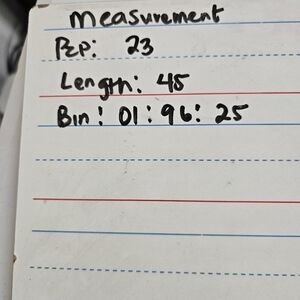 measurement
PEP: 23
Length: 45
Bin: 01:96:25